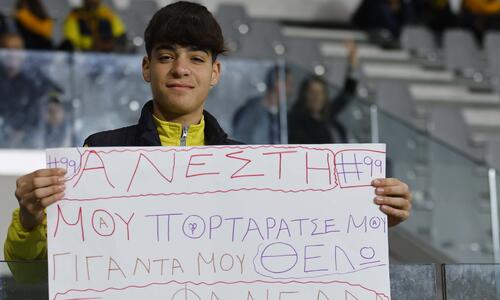 #99 ΑΝΕΣΤΗ #99
ΜΟΥ ΠΟΡΤΑΡΑΤΣΕ ΜΟΥ
ΓΙΓΑΝΤΑ ΜΟΥ ΘΕΛΩ
ΦΑΝΕΛΑ